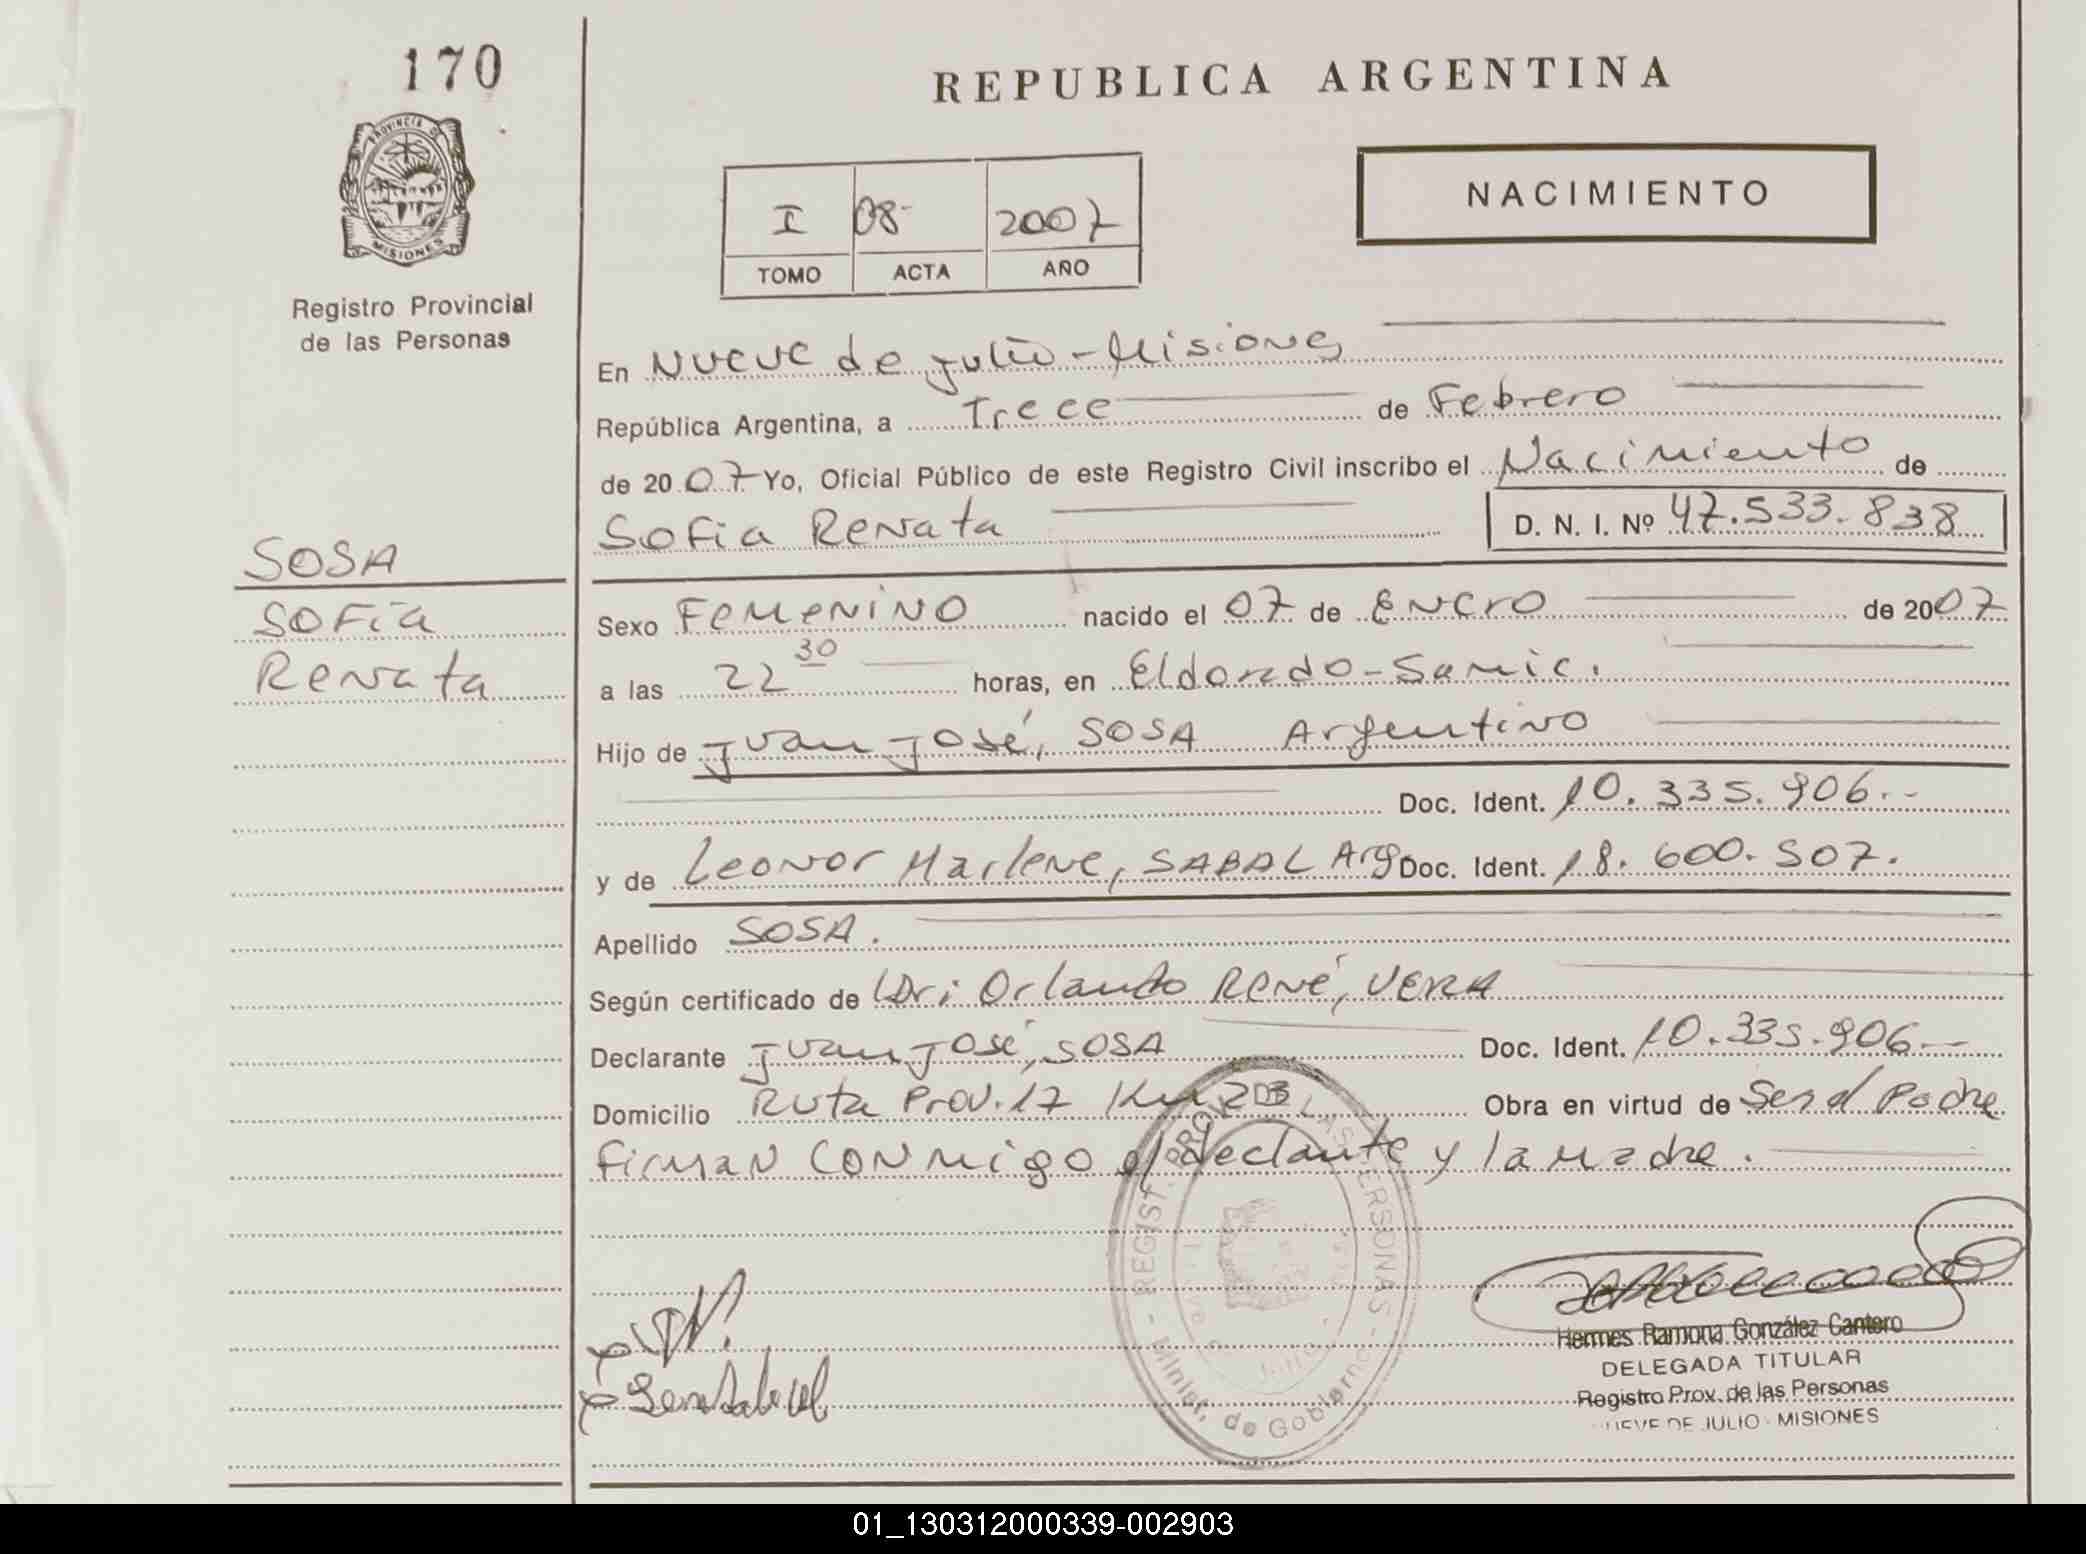 170
PROVINCIA DE
MISIONES
Registro Provincial
de las Personas
REPUBLICA ARGENTINA
I 08- 2007
TOMO ACTA AÑO
NACIMIENTO
En Nueve de julio - Misiones
República Argentina, a Trece de Febrero
de 2007 Yo, Oficial Público de este Registro Civil inscribo el Nacimiento de
Sofia Renata D. N. I. Nº 47.533.838
SOSA
Sofía
Renata
Sexo Femenino nacido el 07 de Enero de 2007
a las 22 30 horas, en Eldorado - Samic.
Hijo de Juan José, SOSA Argentino
Doc. Ident. 10.335.906.-
y de Leonor Marlene, SABAL Arg Doc. Ident. 18.600.507.
Apellido SOSA.
Según certificado de Orlando René, VERA
Declarante Juan José, SOSA Doc. Ident. 10.335.906-
Domicilio Ruta Prov. 17 Km Obra en virtud de Ser el Padre
Firman conmigo el declante y la madre.
REGIST. PROV. DE LAS PERSONAS - Minist. de Gobierno -
Hermes Ramona González Cantero
DELEGADA TITULAR
Registro Prov. de las Personas
NUEVE DE JULIO - MISIONES
01_130312000339-002903